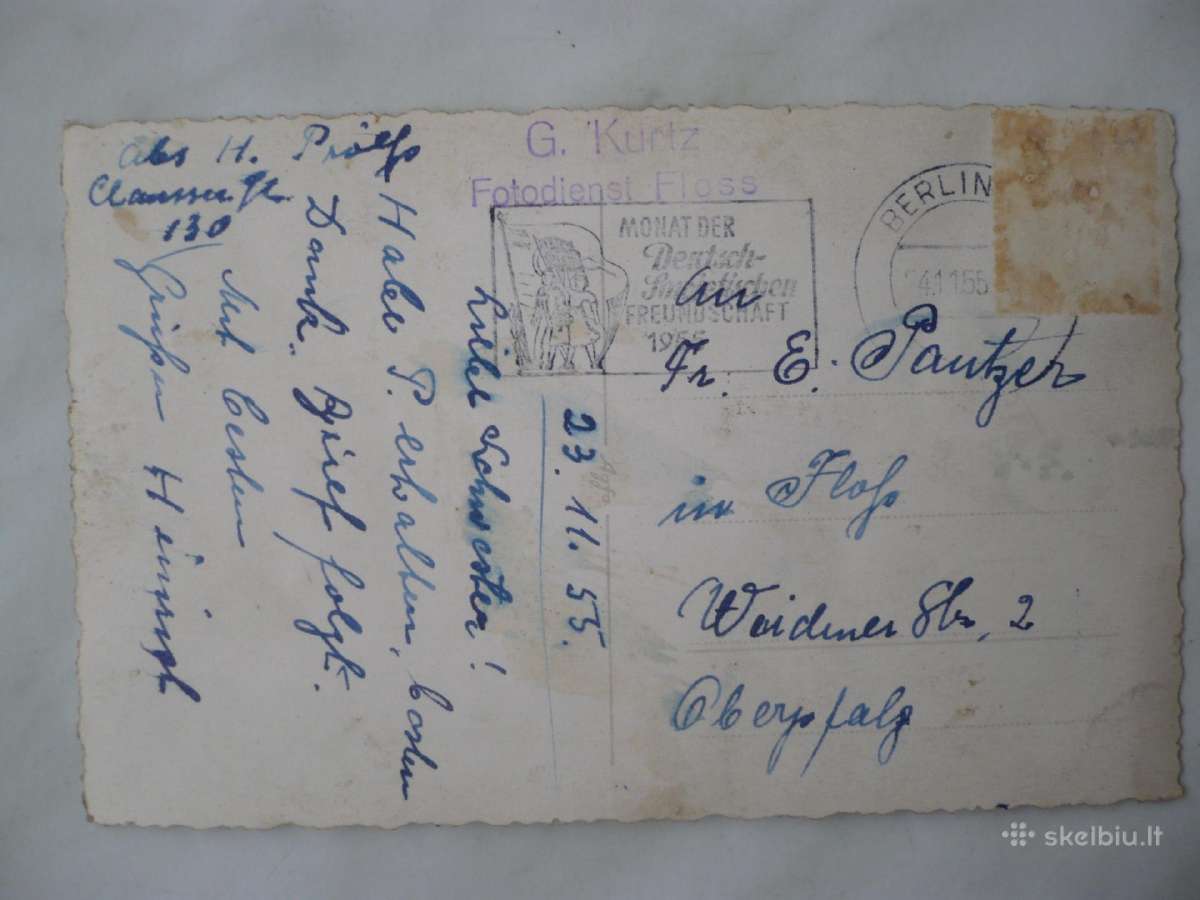 Abs H.
130
23. 11. 55.
Liebe Schwester!
Habe P. erhalten, besten
Dank. Brief folgt.
Mit besten
Grüßen Heinrich
G. Kurtz
Fotodienst Floss
MONAT DER
Deutsch-
Sowjetischen
FREUNDSCHAFT
1955
BERLIN
24.11.55
Agfa
An
Fr. E. Pautzer
in Floß
Weidener Str. 2
Oberpfalz
skelbiu.lt